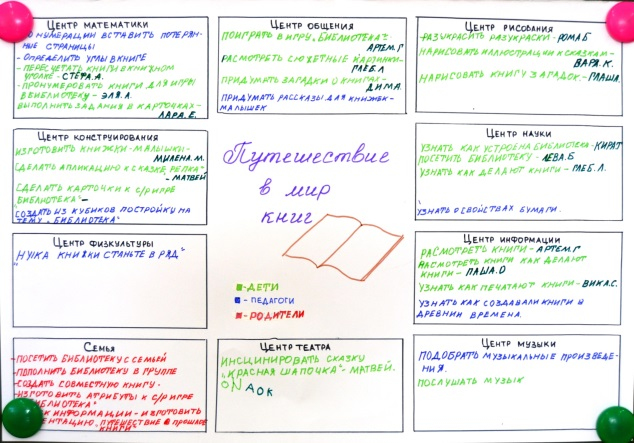 Центр математики
По нумерации вставить потерян-
ные страницы
- Определить углы в книге
- Пересчетать книги в книжном
уголке - Стёфа.А.
- Пронумеровать книги для игры
в библиотеку - Эля.А.
Выполнить задания в карточках -
Лара.Е.
Центр общения
Поиграть в игру "Библиотека" -
Артем.Г
Расмотреть сюжетные картинки -
Глеб.Л
Придумать загадки о книгах -
Дима.
Придумать рассказы для книжек-
малышек
Центр рисования
Разукрасить разукраски - Рома Б
Нарисовать иллюстрации к сказкам -
Варя.К.
Нарисовать книгу загадок - Глаша.
Центр конструирования
Изготовить книжки-малышки -
Милена.М.
Сделать апликацию к сказке "Репка" -
- Матвей
Сделать карточки к с/р игре
"Библиотека" -
"Создать из кубиков постройку на
тему "Библиотека"
Путешествие
в мир
книг
- Дети
- Педагоги
- Родители
Центр науки
Узнать как устроена библиотека - Кират
Посетить библиотеку - Лева.Б
Узнать как делают книги - Глеб.Л.
Узнать о свойствах бумаги.
Центр физкультуры
"Нука книжки станьте в ряд"
Центр информации
Расмотреть книги - Артем.Г
Расмотреть книги как делают
книги - Паша.О
Узнать как печатают книги - Вика.С.
Узнать как создавали книги в
древнии времена.
Семья
- Посетить библиотеку с семьей
- Пополнить библиотеку в группе
- Создать совместную книгу.
- Изготовить атрибуты к с/р игре
"Библиотека"
к информации - изготовить
"Путешествие в прошлое
книги"
Центр театра
Инсцинировать сказку
"Красная шапочка" - Матвей.
Центр музыки
Подобрать музыкальные произведе-
ния.
Послушать музык